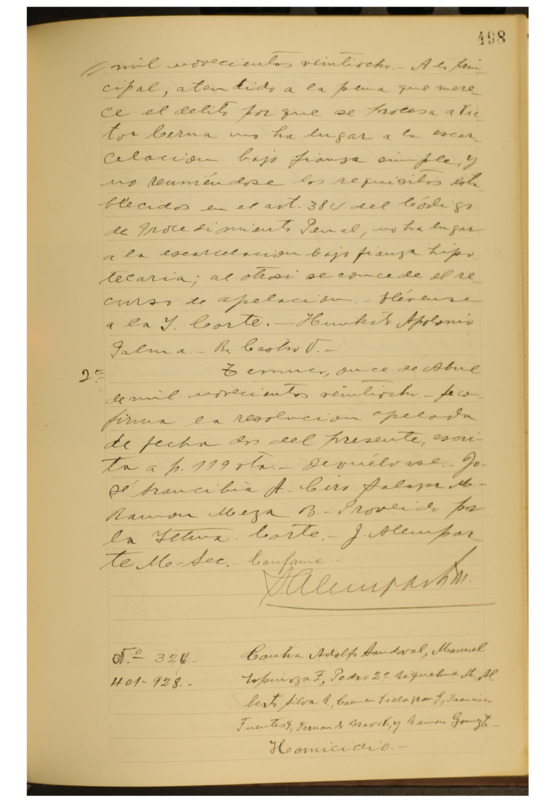 498
mil novecientos veintiocho.- A lo prin
cipal, atendido a la pena que mere
ce el delito por que se procesa a Víc
tor Cerna no ha lugar a la escar
celacion bajo fianza simple, y
no reuniéndose los requisitos esta
blecidos en el art. 384 del Código
de Procedimiento Penal, no ha lugar
a la escarcelacion bajo fianza hipo
tecaria; al otrosi se concede el re
curso de apelacion.- Elévense
a la I. Corte.- Apolonio
Palma.- R. Castro V.-
2ª Temuco, once de Abril
de mil novecientos veintiocho.- Se con
firma la resolucion apelada
de fecha dos del presente, escri
ta a f. 119 vta.- Devuélvase.- Jo
sé Arancibia A. Ciro Salazar M-
Ramon Meza B.- Proveido por
la Iltma. Corte.- J. Alempar
te M.- Sec.- Conforme-
J Alemparte M.
Nº- 326.- Contra Adolfo Sandoval, Manuel
401-928.- Espinoza F, Pedro 2º M, Al
berto Silva R, Villagran S, Francisco
Fuentes, Fernando y Ramon
Homicidio.-